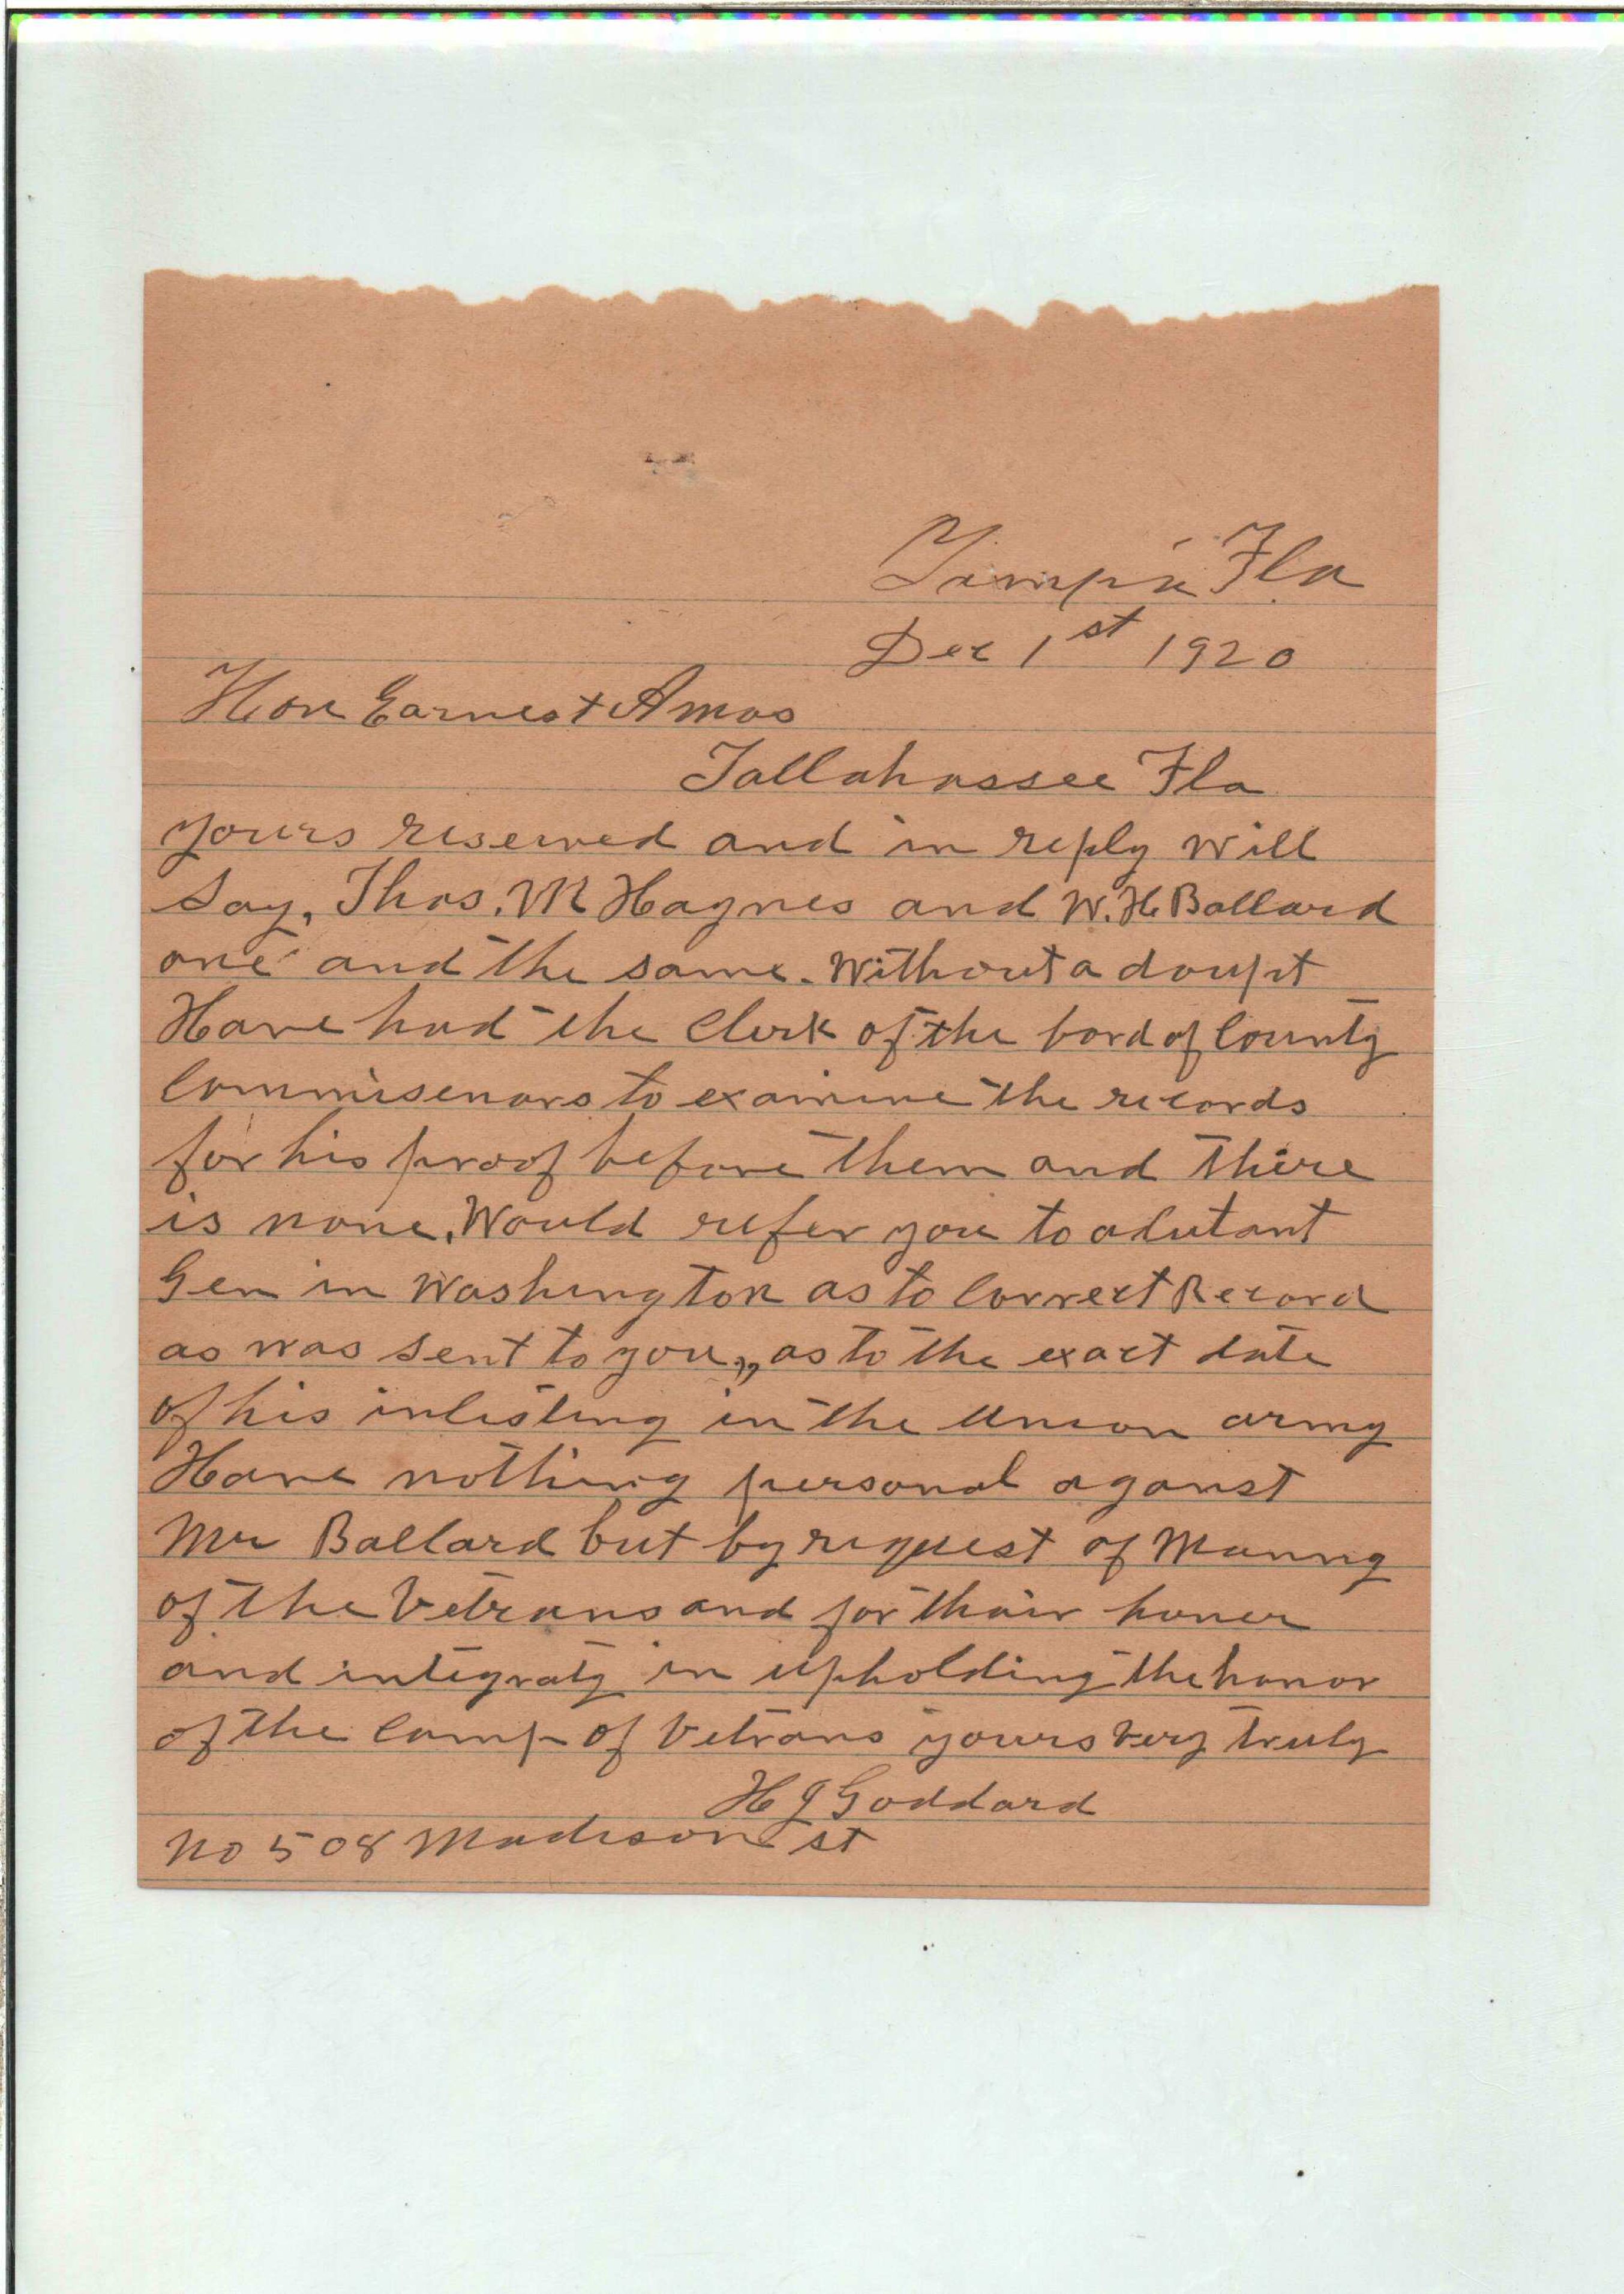 Tampa Fla
Dec 1st 1920
Hon Earnest Amos
Tallahassee Fla
yours reserved and in reply will
say, Thos. M Hagnes and W. H Ballard
one and the same. Without a doupt
Have had the Clerk of the bord of County
Commisenors to examine the records
for his proof before them and there
is none. Would refer you to adutant
Gen in Washington as to Correct Record
as was sent to you,, as to the exact date
of his inlisting in the Union army
Have nothing personal aganst
Mr Ballard but by request of Manny
of the Vetrans and for thair honer
and integraty in upholding the honor
of the Camp of Vetrans yours very truly
H J Goddard
No 508 Madison st